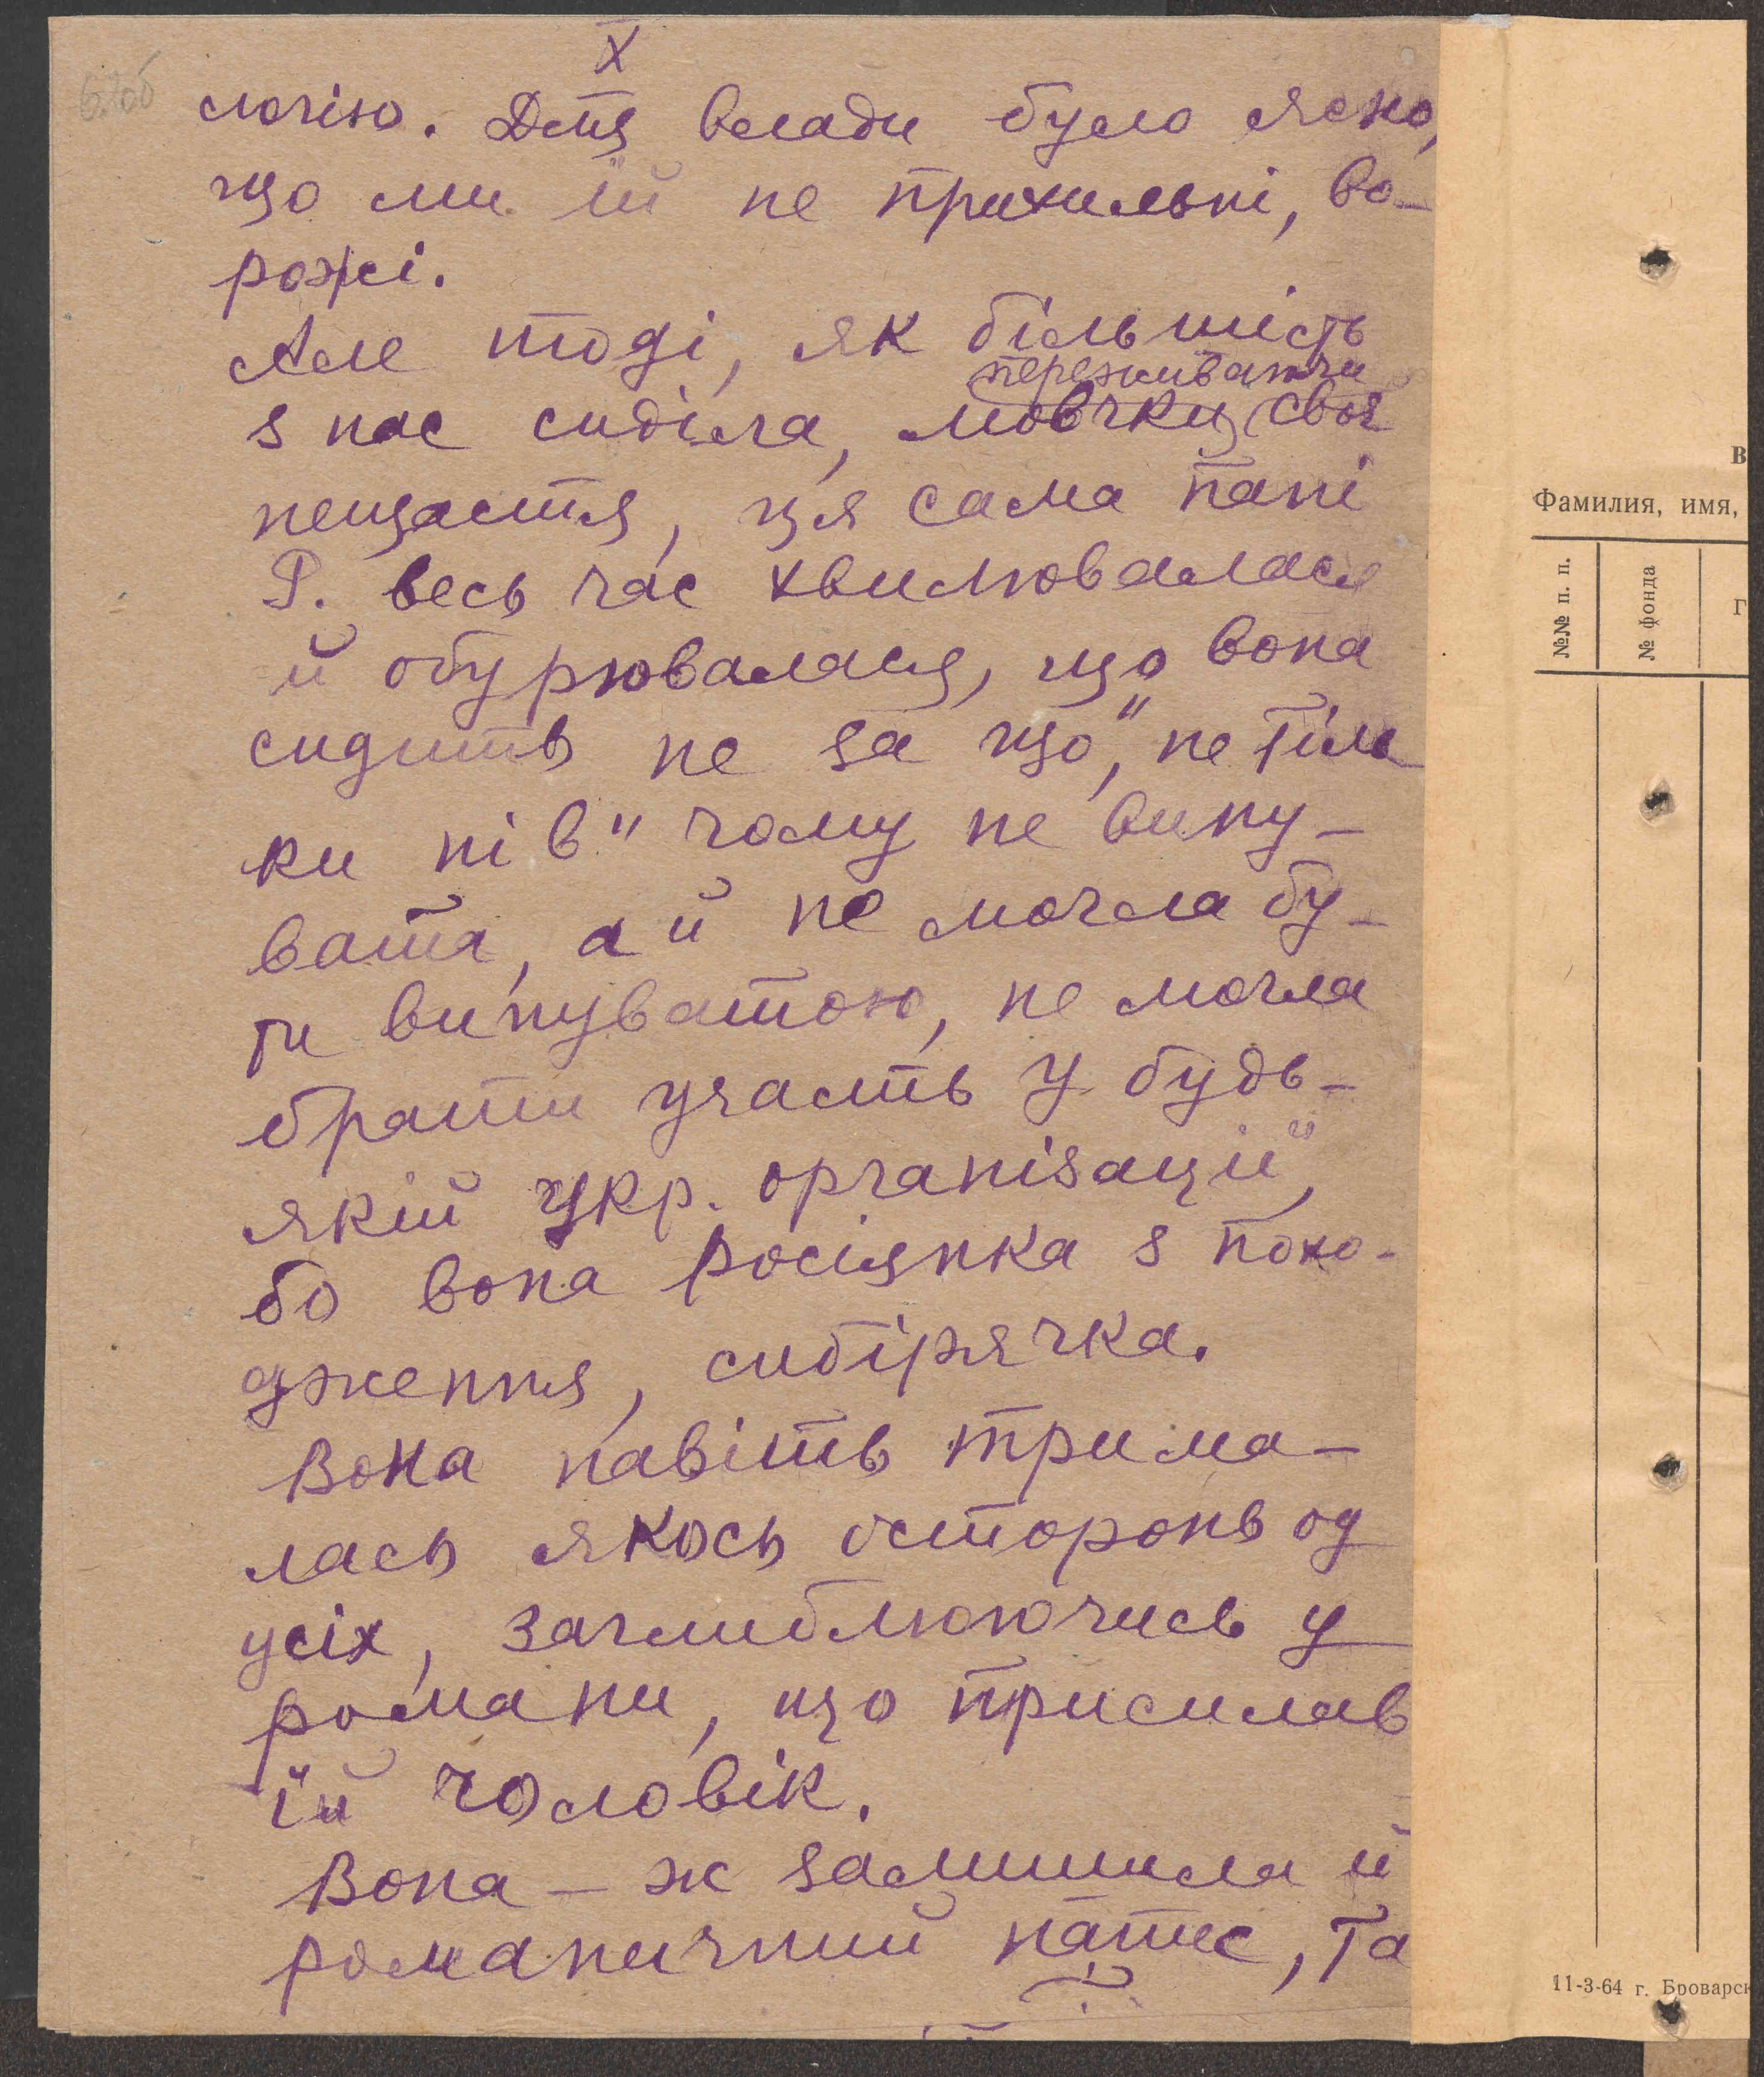 X
слогію. Для влади було ясно,
що ми їй не прихильні, во-
рожі.
Але тоді, як більшість
переживаючи
з нас сиділа, мовчки своє
нещастя, ця сама пані
Р. весь час хвилювалася
й обурювалася, що вона
сидить не за що," не тіль
ки ні в" чому не вину-
вата, а й не могла бу-
ти винуватою, не могла
брати участь у будь-
якій укр. організації,
бо вона росіянка з похо-
дження, сибірячка.
Вона навіть трима-
лась якось осторонь од
усіх, заглиблюючись у
романи, що присилав
їй чоловік.
Вона-ж залишила й
романичний
, та
В
Фамилия, имя,
№№ п. п.
№ фонда
Г
11-3-64 г. Броварск